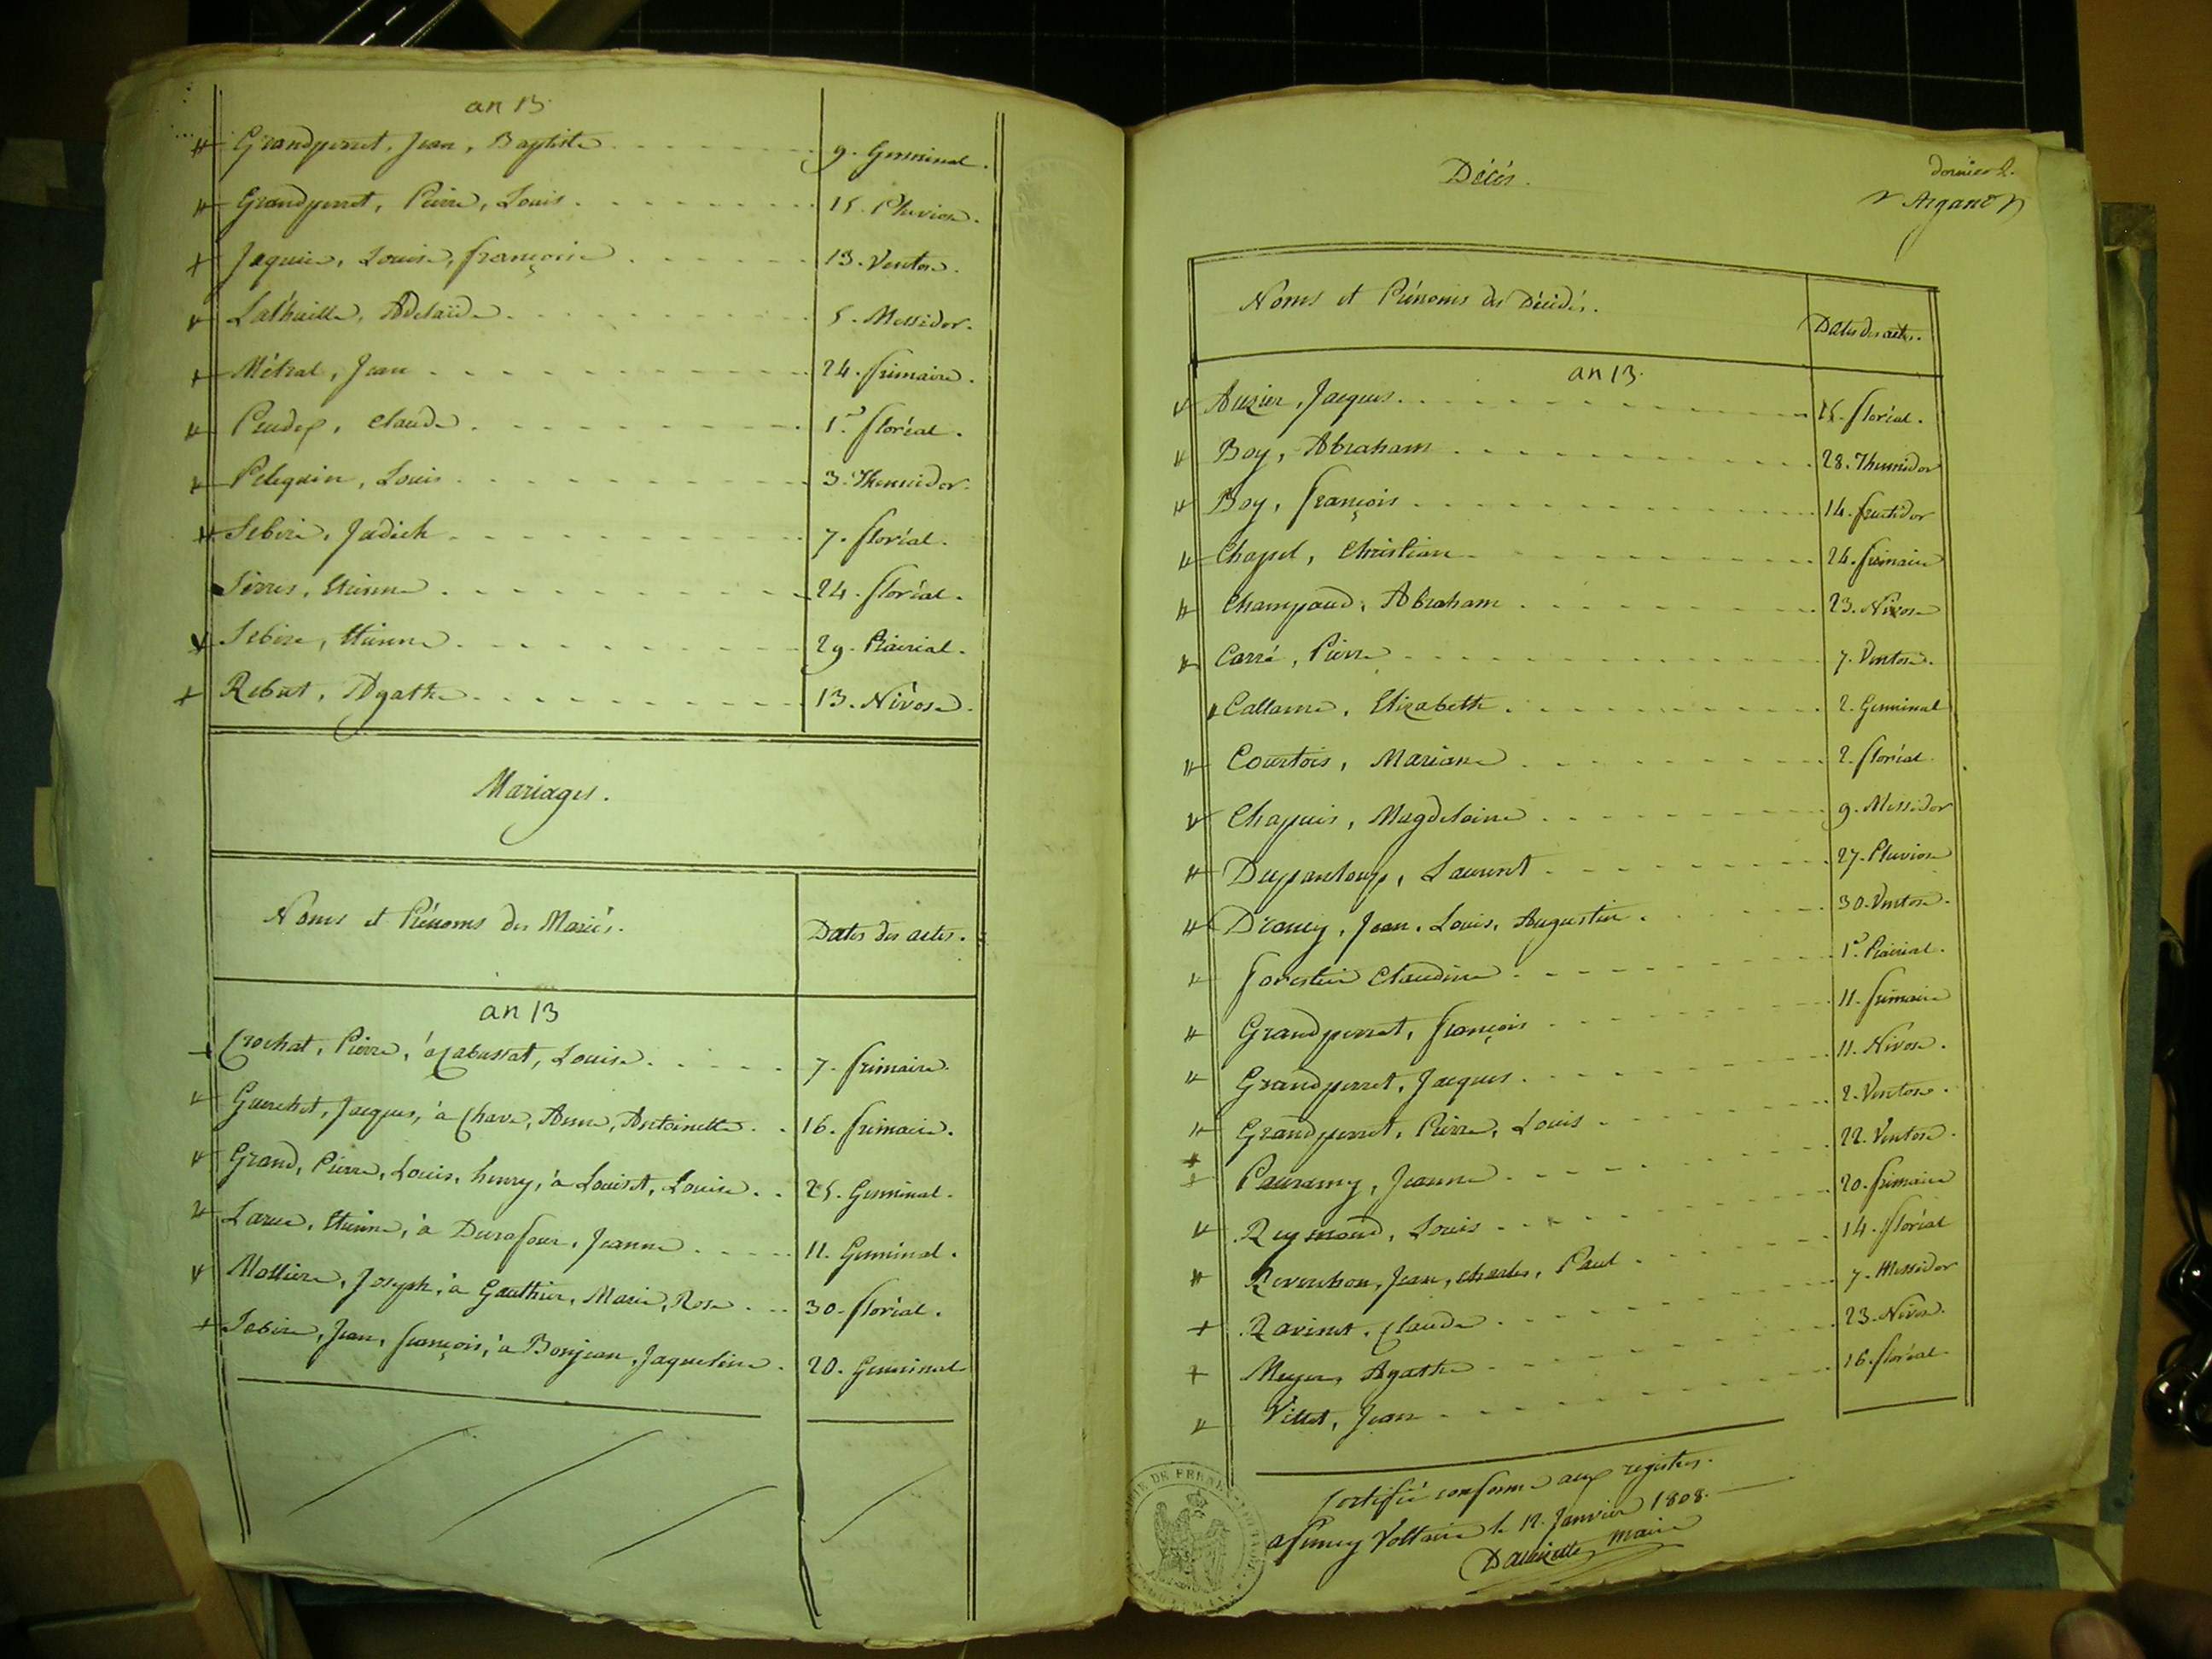 an 13.
Grandperret, Jean, Baptiste 9. Germinal.
Grandperret, Pierre, Louis. 15. Pluviose.
Jaquier, Louise, françoise 13. Ventose.
Lathuille, Adelaïde. 5. Messidor.
Métral, Jean 24. frimaire.
Claude. 1.er floréal.
Peleguin, Louis. 3. Thermidor.
Sebire, Judich 7. floréal.
Serres, Etienne 24. floréal.
Sebire, Etienne. 29. Prairial.
Rebut, Agathe 13. Nivose.
Mariages.
Noms et Prénoms des Mariés.
Dates des actes.
an 13
Crochat, Pierre, à Cabussat, Louise. 7. frimaire.
Guerchet, Jacques, à Chave, Anne, Antoinette. 16. frimaire.
Grand, Pierre, Louis, henry, à Louiset, Louise. 25. Germinal.
Larue, Etienne, à Durafour, Jeanne 11. Germinal.
Mollière, Joseph, à Gauthier, Marie, Rose 30. floréal.
Sebire, Jean, françois, à Bonjean, Jaqueline. 20. Germinal
Décès.
dernier f.
Argand
Noms et Prénoms des Décédés.
Dates des actes.
an 13.
Auzier, Jacques. 25. floréal.
Boy, Abraham 28. Thermidor
Boy, françois 14. fructidor
Chapel, Christian 24. frimaire
Champaud, Abraham 23. Nivose
Carré, Pierre 7. Ventose.
Callame, Elizabeth 2. Germinal
Courtois, Mariane 2. floréal.
Chapuis, Magdelaine 9. Messidor
Dupanloup, Laurent 27. Pluviose
Drouey, Jean, Louis, Augustin. 30. Ventose.
forestier Claudine 1.er Prairial.
Grandperret, françois 11. frimaire
Grandperret, Jacques. 11. Nivose.
Grandperret, Pierre, Louis 2. Ventose.
Pauramy, Jeanne 22. Ventose.
Reymond, Louis 20. frimaire
Reverchon, Jean, charles, Paul 14. floréal
Ravinet, Claude 7. Messidor
Meyer, Agathe 23. Nivose.
Villet, Jean 16. floréal.
Certifié conforme aux registres.
a ferney Voltaire le 12. Janvier 1808.
maire